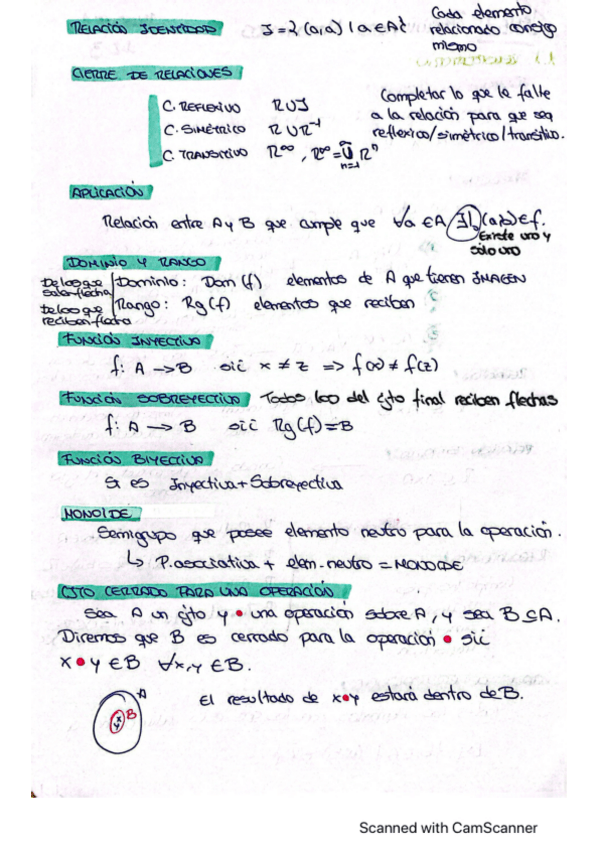 RELACIÓN IDENTIDAD I = {(a,a) | a ∈ A}
Cada elemento
relacionado consigo
mismo
CIERRE DE RELACIONES
C. REFLEXIVO R ∪ I
C. SIMÉTRICO R ∪ R⁻¹
C. TRANSITIVO R^∞ , R^∞ = ∪ R^n
n=1
Completar lo que la falte
a la relación para que sea
reflexico/simétrico/transitivo.
APLICACIÓN
Relación entre A y B que cumple que ∀a ∈ A ∃! b (a,b) ∈ f.
Existe uno y
sólo uno
DOMINIO Y RANGO
De los que
salen flecha
Dominio: Dom(f) elementos de A que tienen IMAGEN
De los que
reciben flecha
Rango: Rg(f) elementos que reciben
FUNCIÓN INYECTIVA
f: A → B sii x ≠ z => f(x) ≠ f(z)
FUNCIÓN SOBREYECTIVA Todos los del cjto final reciben flechas
f: A → B sii Rg(f) = B
FUNCIÓN BIYECTIVA
Si es Inyectiva + Sobreyectiva
MONOIDE
Semigrupo que posee elemento neutro para la operación.
↳ P. asociativa + elem. neutro = MONOIDE
CJTO CERRADO PARA UNA OPERACIÓN
Sea A un cjto y • una operación sobre A, y sea B ⊆ A.
Diremos que B es cerrado para la operación • sii
x • y ∈ B ∀x,y ∈ B.
A
B
x
y
El resultado de x•y estará dentro de B.
Scanned with CamScanner